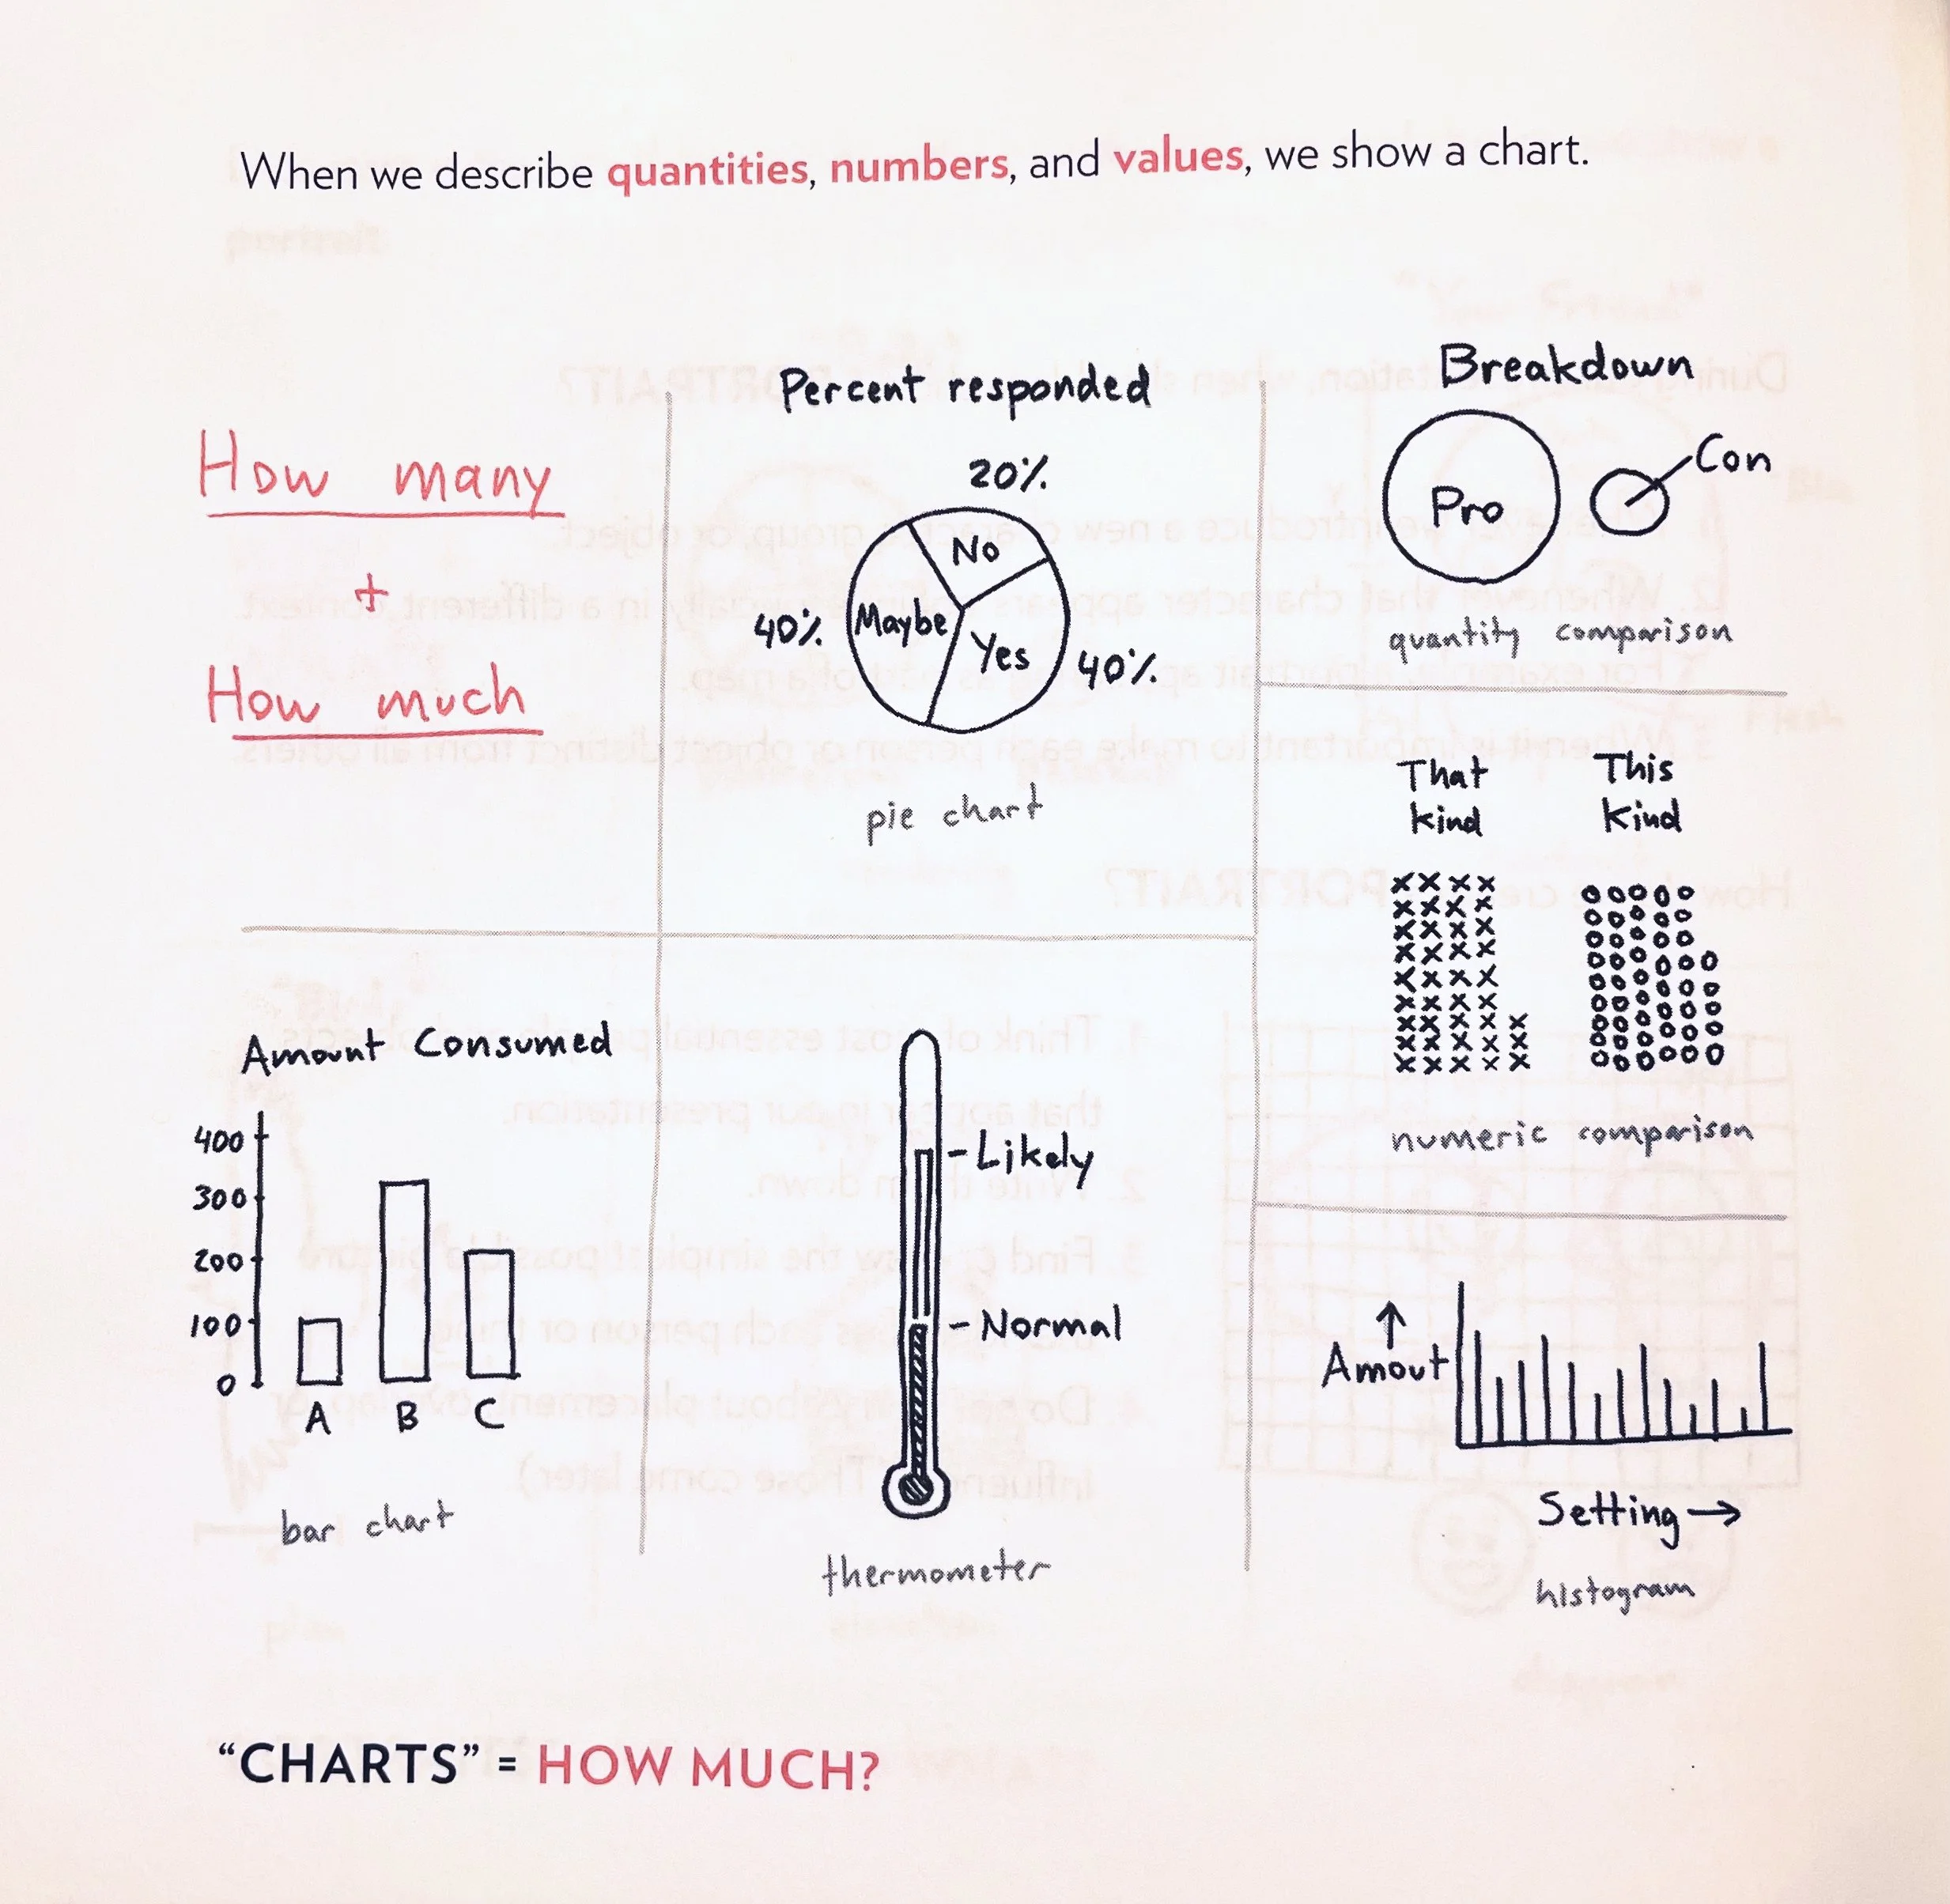 When we describe quantities, numbers, and values, we show a chart.
How many
+
How much
Percent responded
20%
No
Maybe
Yes
40%
40%
pie chart
Breakdown
Pro
Con
quantity comparison
That kind
This kind
x x x x
x x x x
x x x x
x x x x
x x x x
x x x x
x x x x x
x x x x x
x x x x x
numeric comparison
Amount Consumed
400
300
200
100
0
A B C
bar chart
Likely
Normal
thermometer
↑
Amout
Setting →
histogram
"CHARTS" = HOW MUCH?